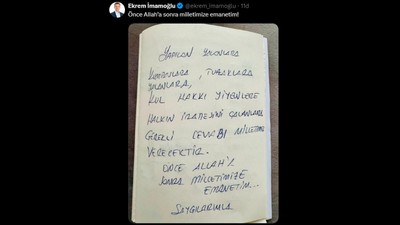 Ekrem İmamoğlu @ekrem_imamoglu · 11d
Önce Allah'a sonra milletimize emanetim!
YAPILAN YANLIŞLARA
KUMPASLARA, TUZAKLARA
YALANLARA,
KUL HAKKI YİYENLERE
HALKIN İRADESİNİ ÇALANLARA
GEREKLİ CEVABI MİLLETİMİZ
VERECEKTİR.
ÖNCE ALLAH'A
SONRA MİLLETİMİZE
EMANETİM...
SAYGILARIMLA